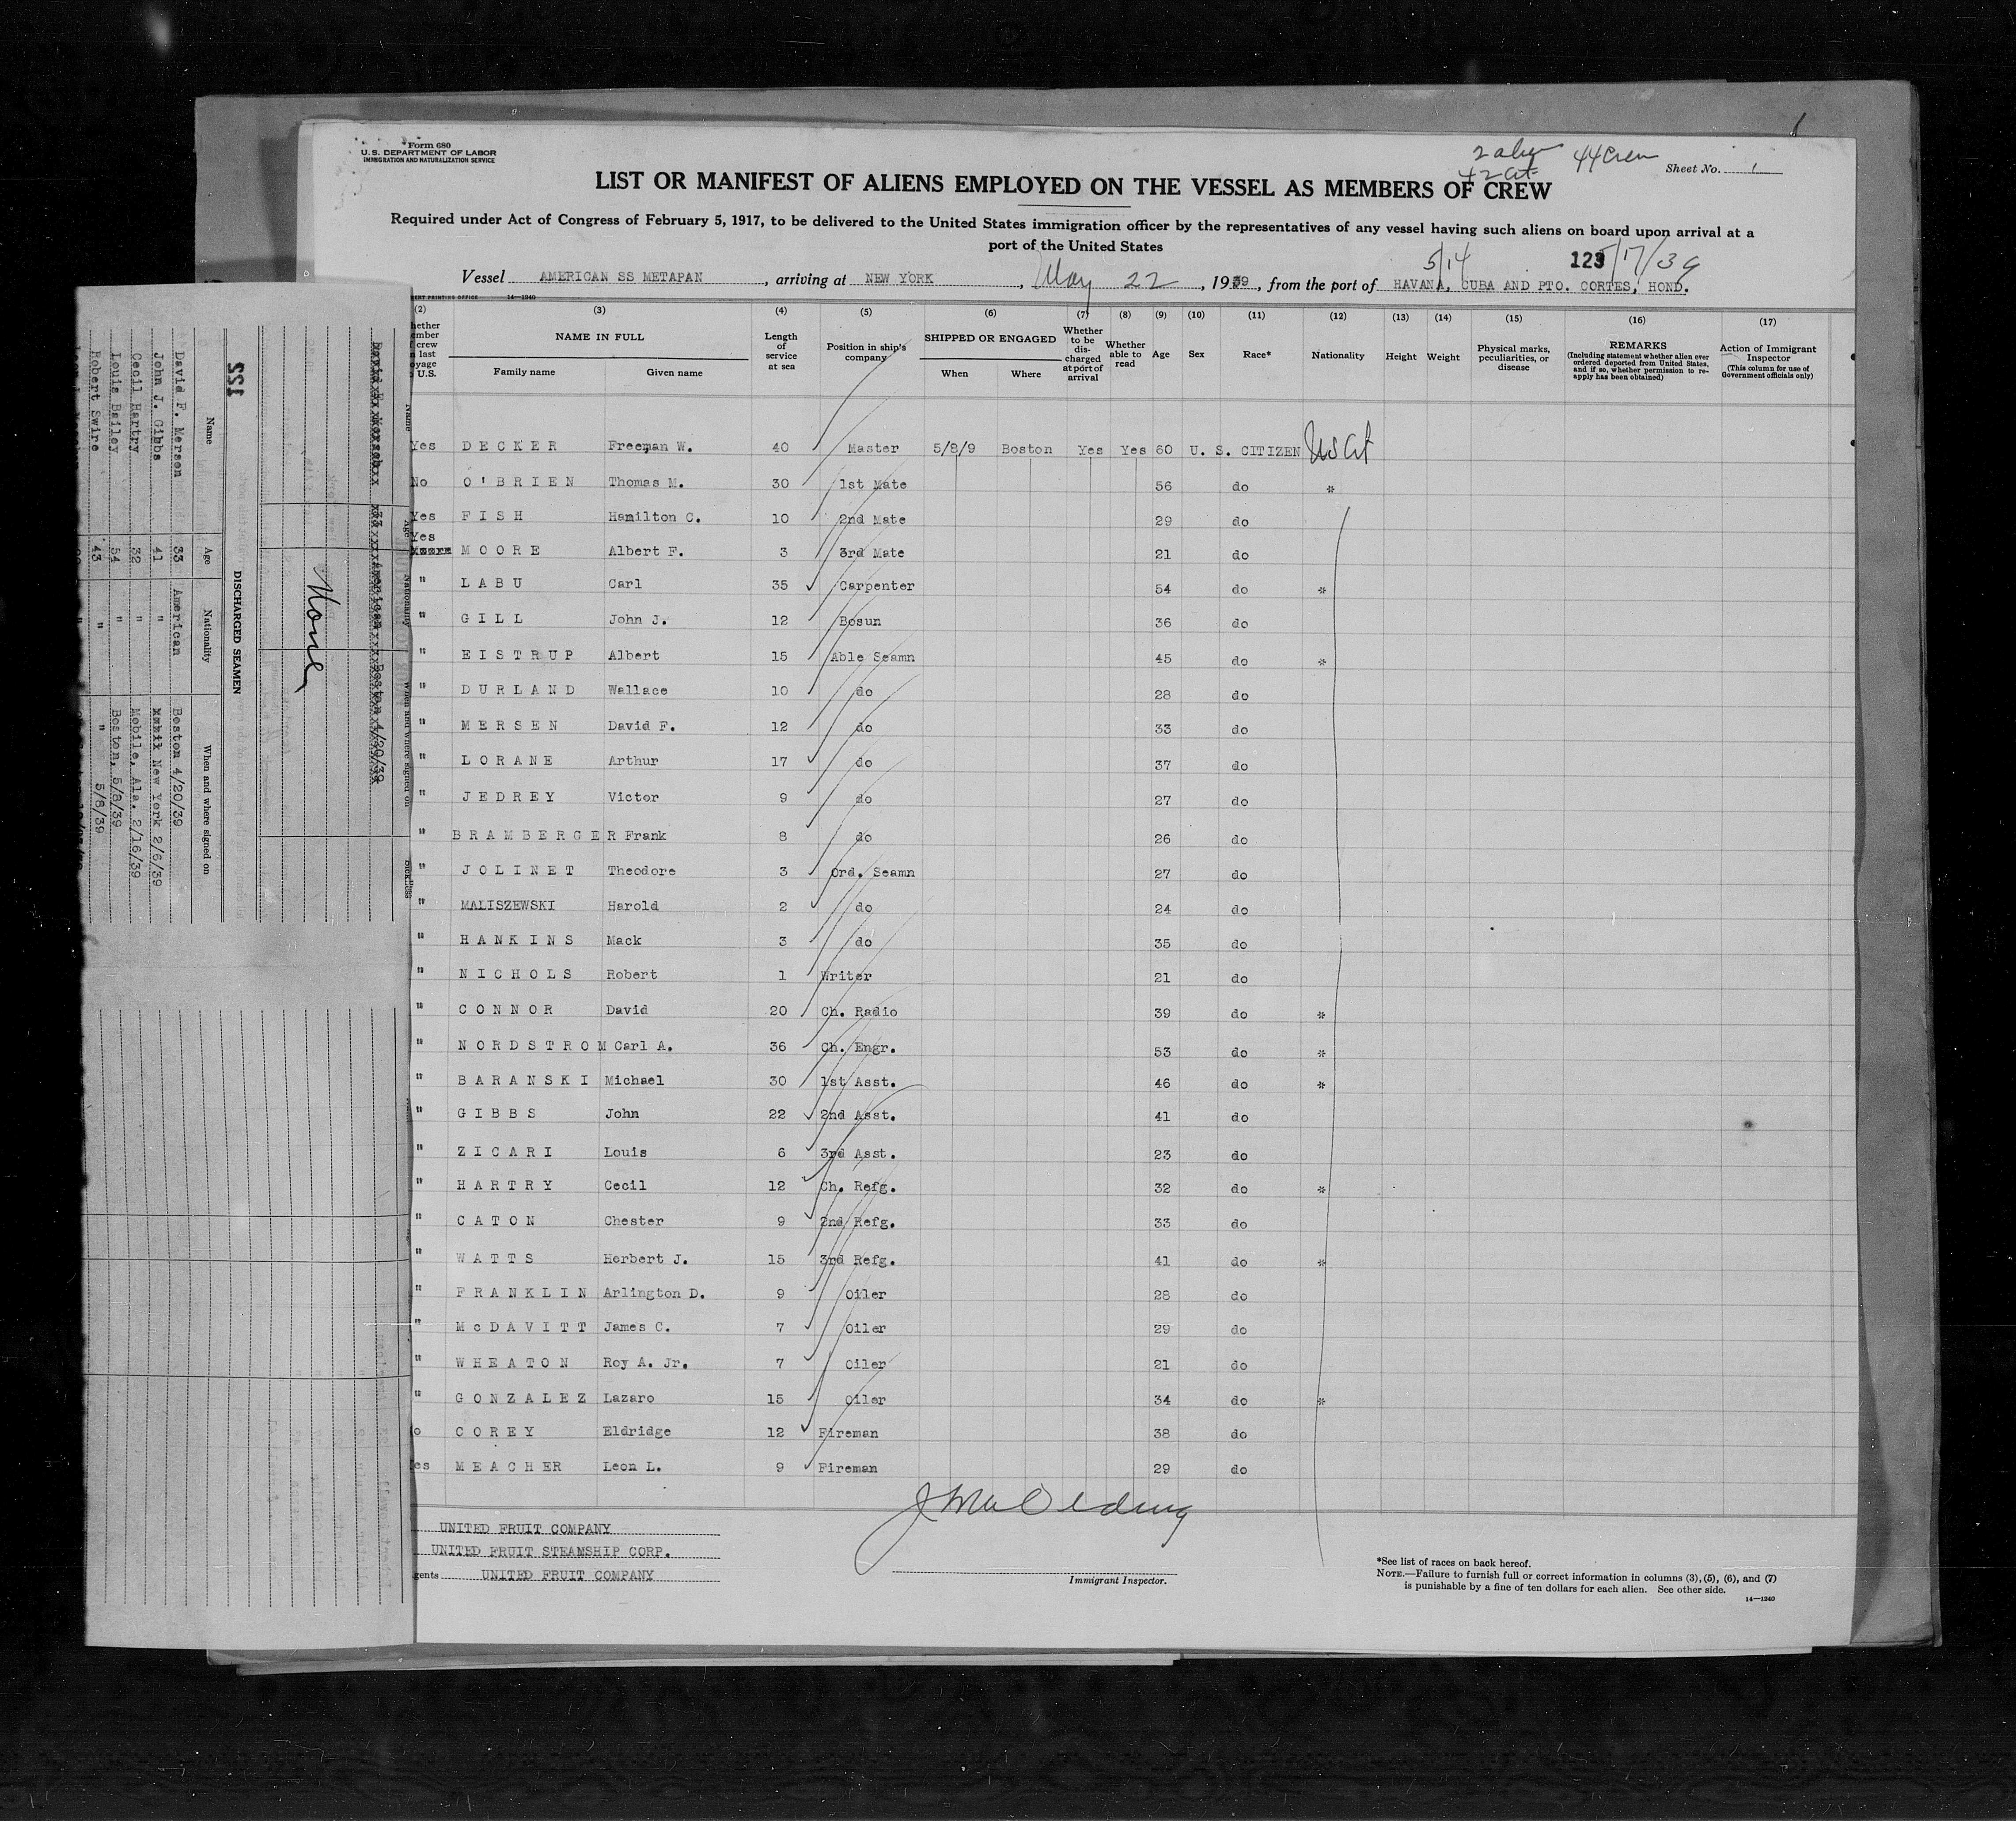 1
Form 680
U.S. DEPARTMENT OF LABOR
IMMIGRATION AND NATURALIZATION SERVICE
44 Crew
Sheet No. 1
LIST OR MANIFEST OF ALIENS EMPLOYED ON THE VESSEL AS MEMBERS OF CREW
Required under Act of Congress of February 5, 1917, to be delivered to the United States immigration officer by the representatives of any vessel having such aliens on board upon arrival at a
port of the United States
5/14 5/17/39
Vessel AMERICAN SS METAPAN, arriving at NEW YORK, May 22, 1939, from the port of HAVANA, CUBA AND PTO. CORTES, HOND.
(2) (3) (4) (5) (6) (7) (8) (9) (10) (11) (12) (13) (14) (15) (16) (17)
NAME IN FULL
Family name Given name
Length of service at sea
Position in ship's company
SHIPPED OR ENGAGED
When Where
Whether to be discharged at port of arrival
Whether able to read
Age Sex Race* Nationality Height Weight
Physical marks, peculiarities, or disease
REMARKS
(Including statement whether alien ever ordered deported from United States, and if so, whether permission to reapply has been obtained)
Action of Immigrant Inspector
(This column for use of Government officials only)
Yes DECKER Freeman W. 40 Master 5/8/9 Boston Yes Yes 60 U. S. CITIZEN US Cit
No O'BRIEN Thomas M. 30 1st Mate 56 do *
Yes FISH Hamilton C. 10 2nd Mate 29 do
Yes MOORE Albert F. 3 3rd Mate 21 do
" LABU Carl 35 Carpenter 54 do *
" GILL John J. 12 Bosun 36 do
" EISTRUP Albert 15 Able Seamn 45 do *
" DURLAND Wallace 10 do 28 do
" MERSEN David F. 12 do 33 do
" LORANE Arthur 17 do 37 do
" JEDREY Victor 9 do 27 do
" BRAMBERGER Frank 8 do 26 do
" JOLINET Theodore 3 Ord. Seamn 27 do
" MALISZEWSKI Harold 2 do 24 do
" HANKINS Mack 3 do 35 do
" NICHOLS Robert 1 Writer 21 do
" CONNOR David 20 Ch. Radio 39 do *
" NORDSTROM Carl A. 36 Ch. Engr. 53 do *
" BARANSKI Michael 30 1st Asst. 46 do *
" GIBBS John 22 2nd Asst. 41 do
" ZICARI Louis 6 3rd Asst. 23 do
" HARTRY Cecil 12 Ch. Refg. 32 do *
" CATON Chester 9 2nd Refg. 33 do
" WATTS Herbert J. 15 3rd Refg. 41 do *
" FRANKLIN Arlington D. 9 Oiler 28 do
" McDAVITT James C. 7 Oiler 29 do
" WHEATON Roy A. Jr. 7 Oiler 21 do
" GONZALEZ Lazaro 15 Oiler 34 do *
COREY Eldridge 12 Fireman 38 do
MEACHER Leon L. 9 Fireman 29 do
UNITED FRUIT COMPANY
UNITED FRUIT STEAMSHIP CORP.
UNITED FRUIT COMPANY
Immigrant Inspector.
*See list of races on back hereof.
NOTE.—Failure to furnish full or correct information in columns (3), (5), (6), and (7)
is punishable by a fine of ten dollars for each alien. See other side.
14—1240
None
122
DISCHARGED SEAMEN
Name Age Nationality When and where signed on
David F. Mersen 33 American Boston 4/20/39
John J. Gibbs 41 " New York 2/6/39
Cecil Hartry 32 " Mobile, Ala. 2/16/39
Louis Bailey 54 " Boston, 5/8/39
Robert Swire 43 " " 5/8/39